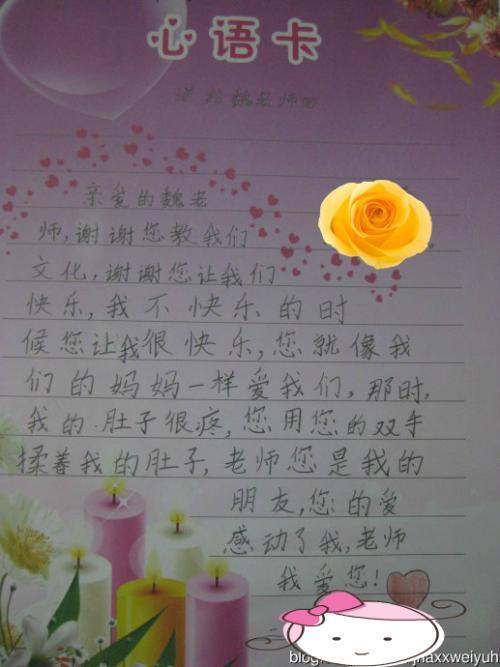 心语卡
送给魏老师的
亲爱的魏老
师,谢谢您教我们
文化,谢谢您让我们
快乐,我不快乐的时
候您让我很快乐,您就像我
们的妈妈一样爱我们,那时,
我的肚子很疼,您用您的双手
揉着我的肚子,老师您是我的
朋友,您的爱
感动了我,老师
我爱您!